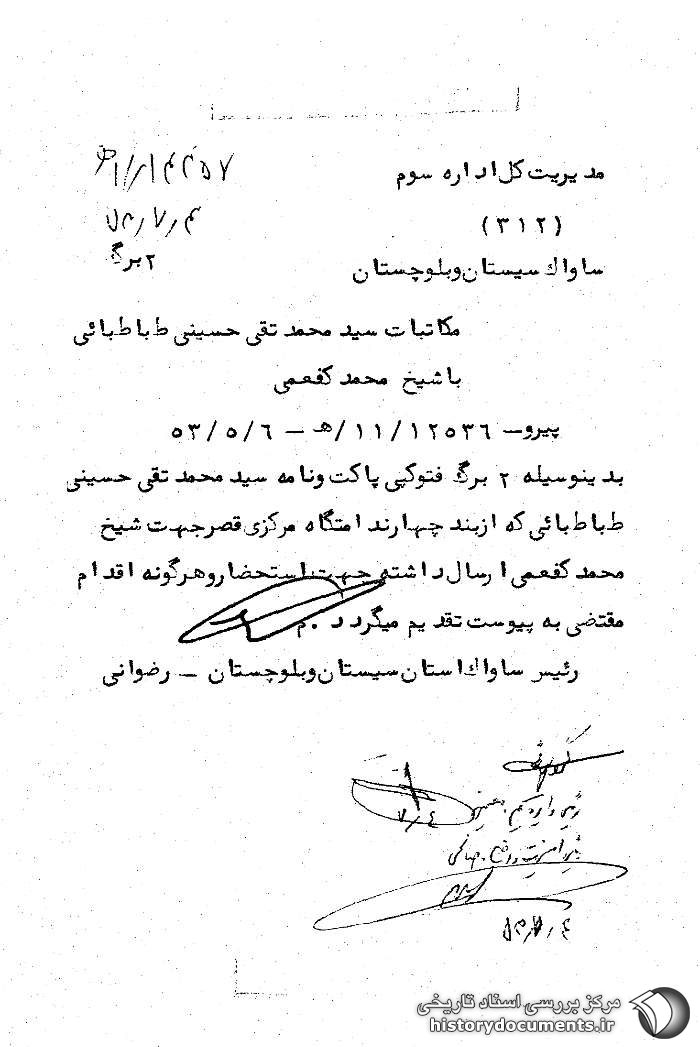 مدیریت کل اداره سوم
(۳۱۲)
ساواک سیستان و بلوچستان
۲ برگ
مکاتبات سید محمد تقی حسینی طباطبائی
با شیخ محمد کفعمی
پیرو – ۱۲۵۳۶/۱۱/ه – ۵۳/۵/۶
بدینوسیله ۲ برگ فتوکپی پاکت و نامه سید محمد تقی حسینی
طباطبائی که از بند چهار ندامتگاه مرکزی قصر جهت شیخ
محمد کفعمی ارسال داشته جهت استحضار و هرگونه اقدام
مقتضی به پیوست تقدیم میگردد .م
رئیس ساواک استان سیستان و بلوچستان – رضوانی
۷/۴
مرکز بررسی اسناد تاریخی
historydocuments.ir